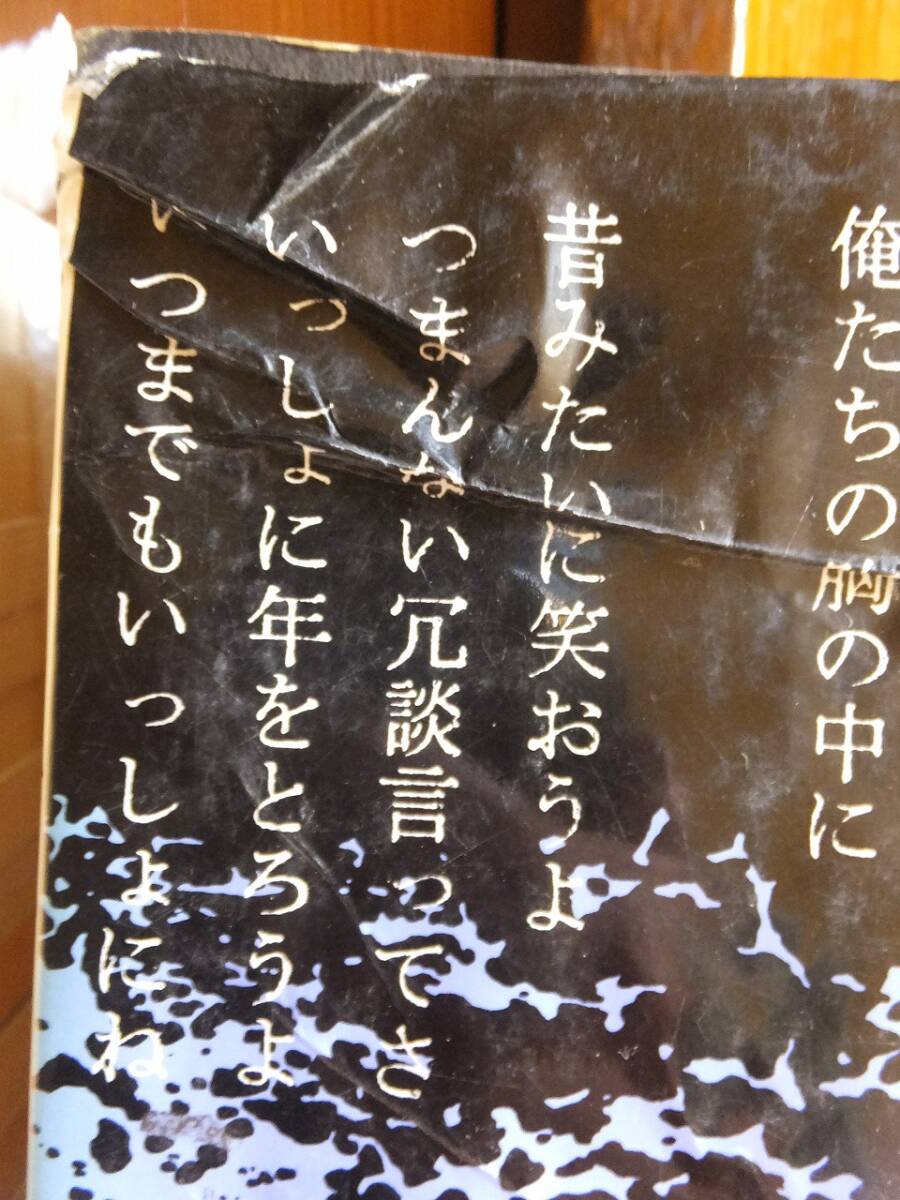 俺たちの胸の中に
昔みたいに笑おうよ
つまんない冗談言ってさ
いっしょに年をとろうよ
いつまでもいっしょにね